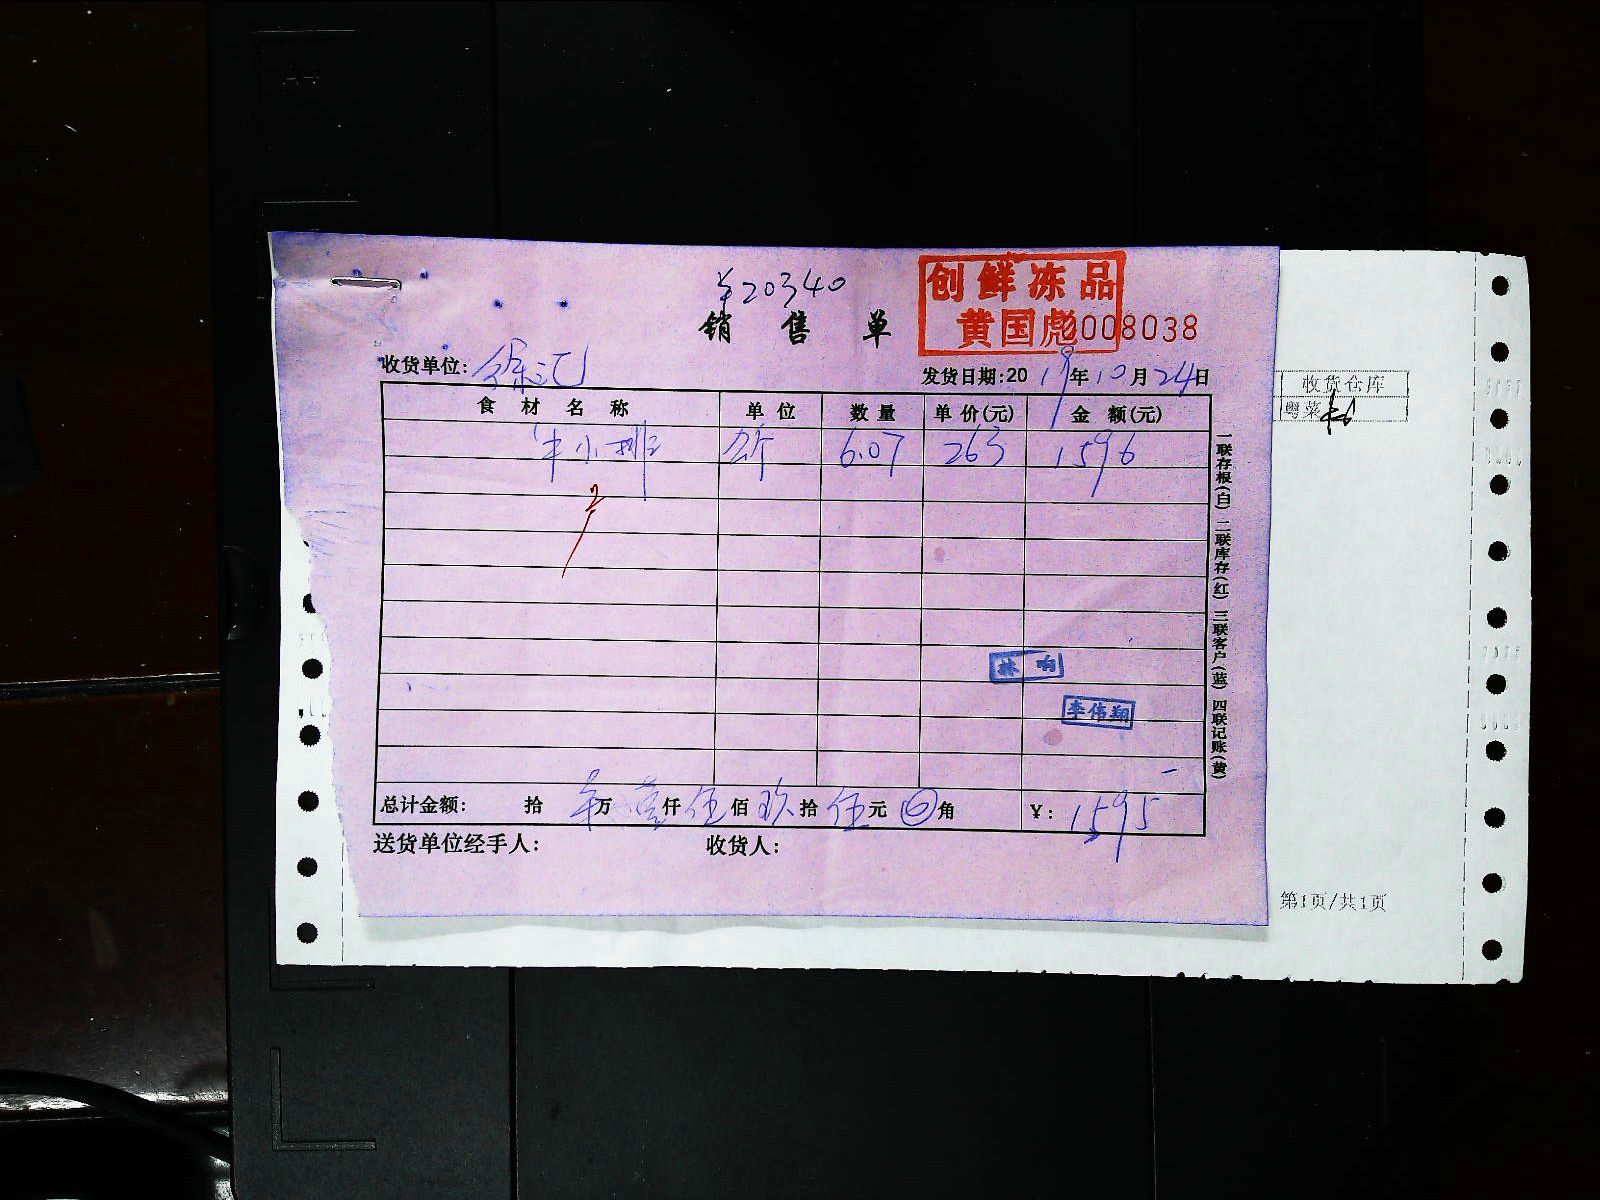 ¥20340
创鲜冻品
黄国彪
销售单 008038
收货单位: 徐汇 发货日期:2019年10月24日
收货仓库
粤菜
食材名称 单位 数量 单价(元) 金额(元)
牛小排 公斤 6.07 263 1596
2
林响
李伟翔
总计金额: 拾 万 壹仟 伍佰 玖拾 伍元 角 ¥: 1595
送货单位经手人: 收货人:
一联存根(白) 二联库存(红) 三联客户(蓝) 四联记账(黄)
第1页/共1页